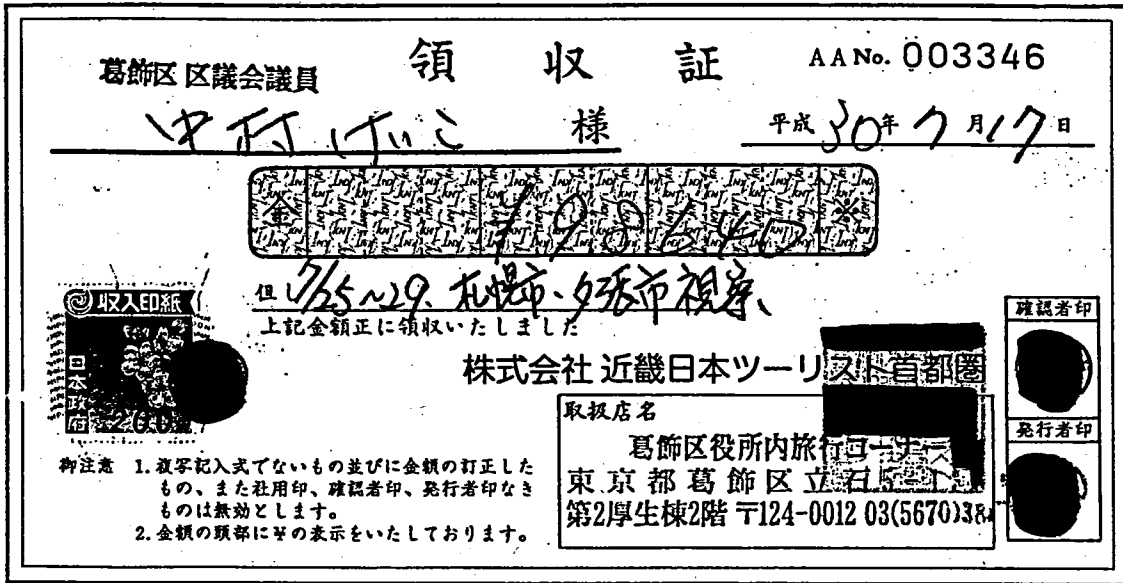 領収証
AA No. 003346
葛飾区 区議会議員
中村 けいこ 様
平成 30年 7月 17日
金 ¥98640 ※
但 7/25~29、札幌市、夕張市視察、
上記金額正に領収いたしました
収入印紙
日本政府
200
株式会社 近畿日本ツーリスト首都圏
取扱店名
葛飾区役所内旅行コーナー
東京都葛飾区立石
第2厚生棟2階 〒124-0012 03(5670)
確認者印
発行者印
御注意 1. 複写記入式でないもの並びに金額の訂正した
もの、また社用印、確認者印、発行者印なき
ものは無効とします。
2. 金額の頭部に¥の表示をいたしております。